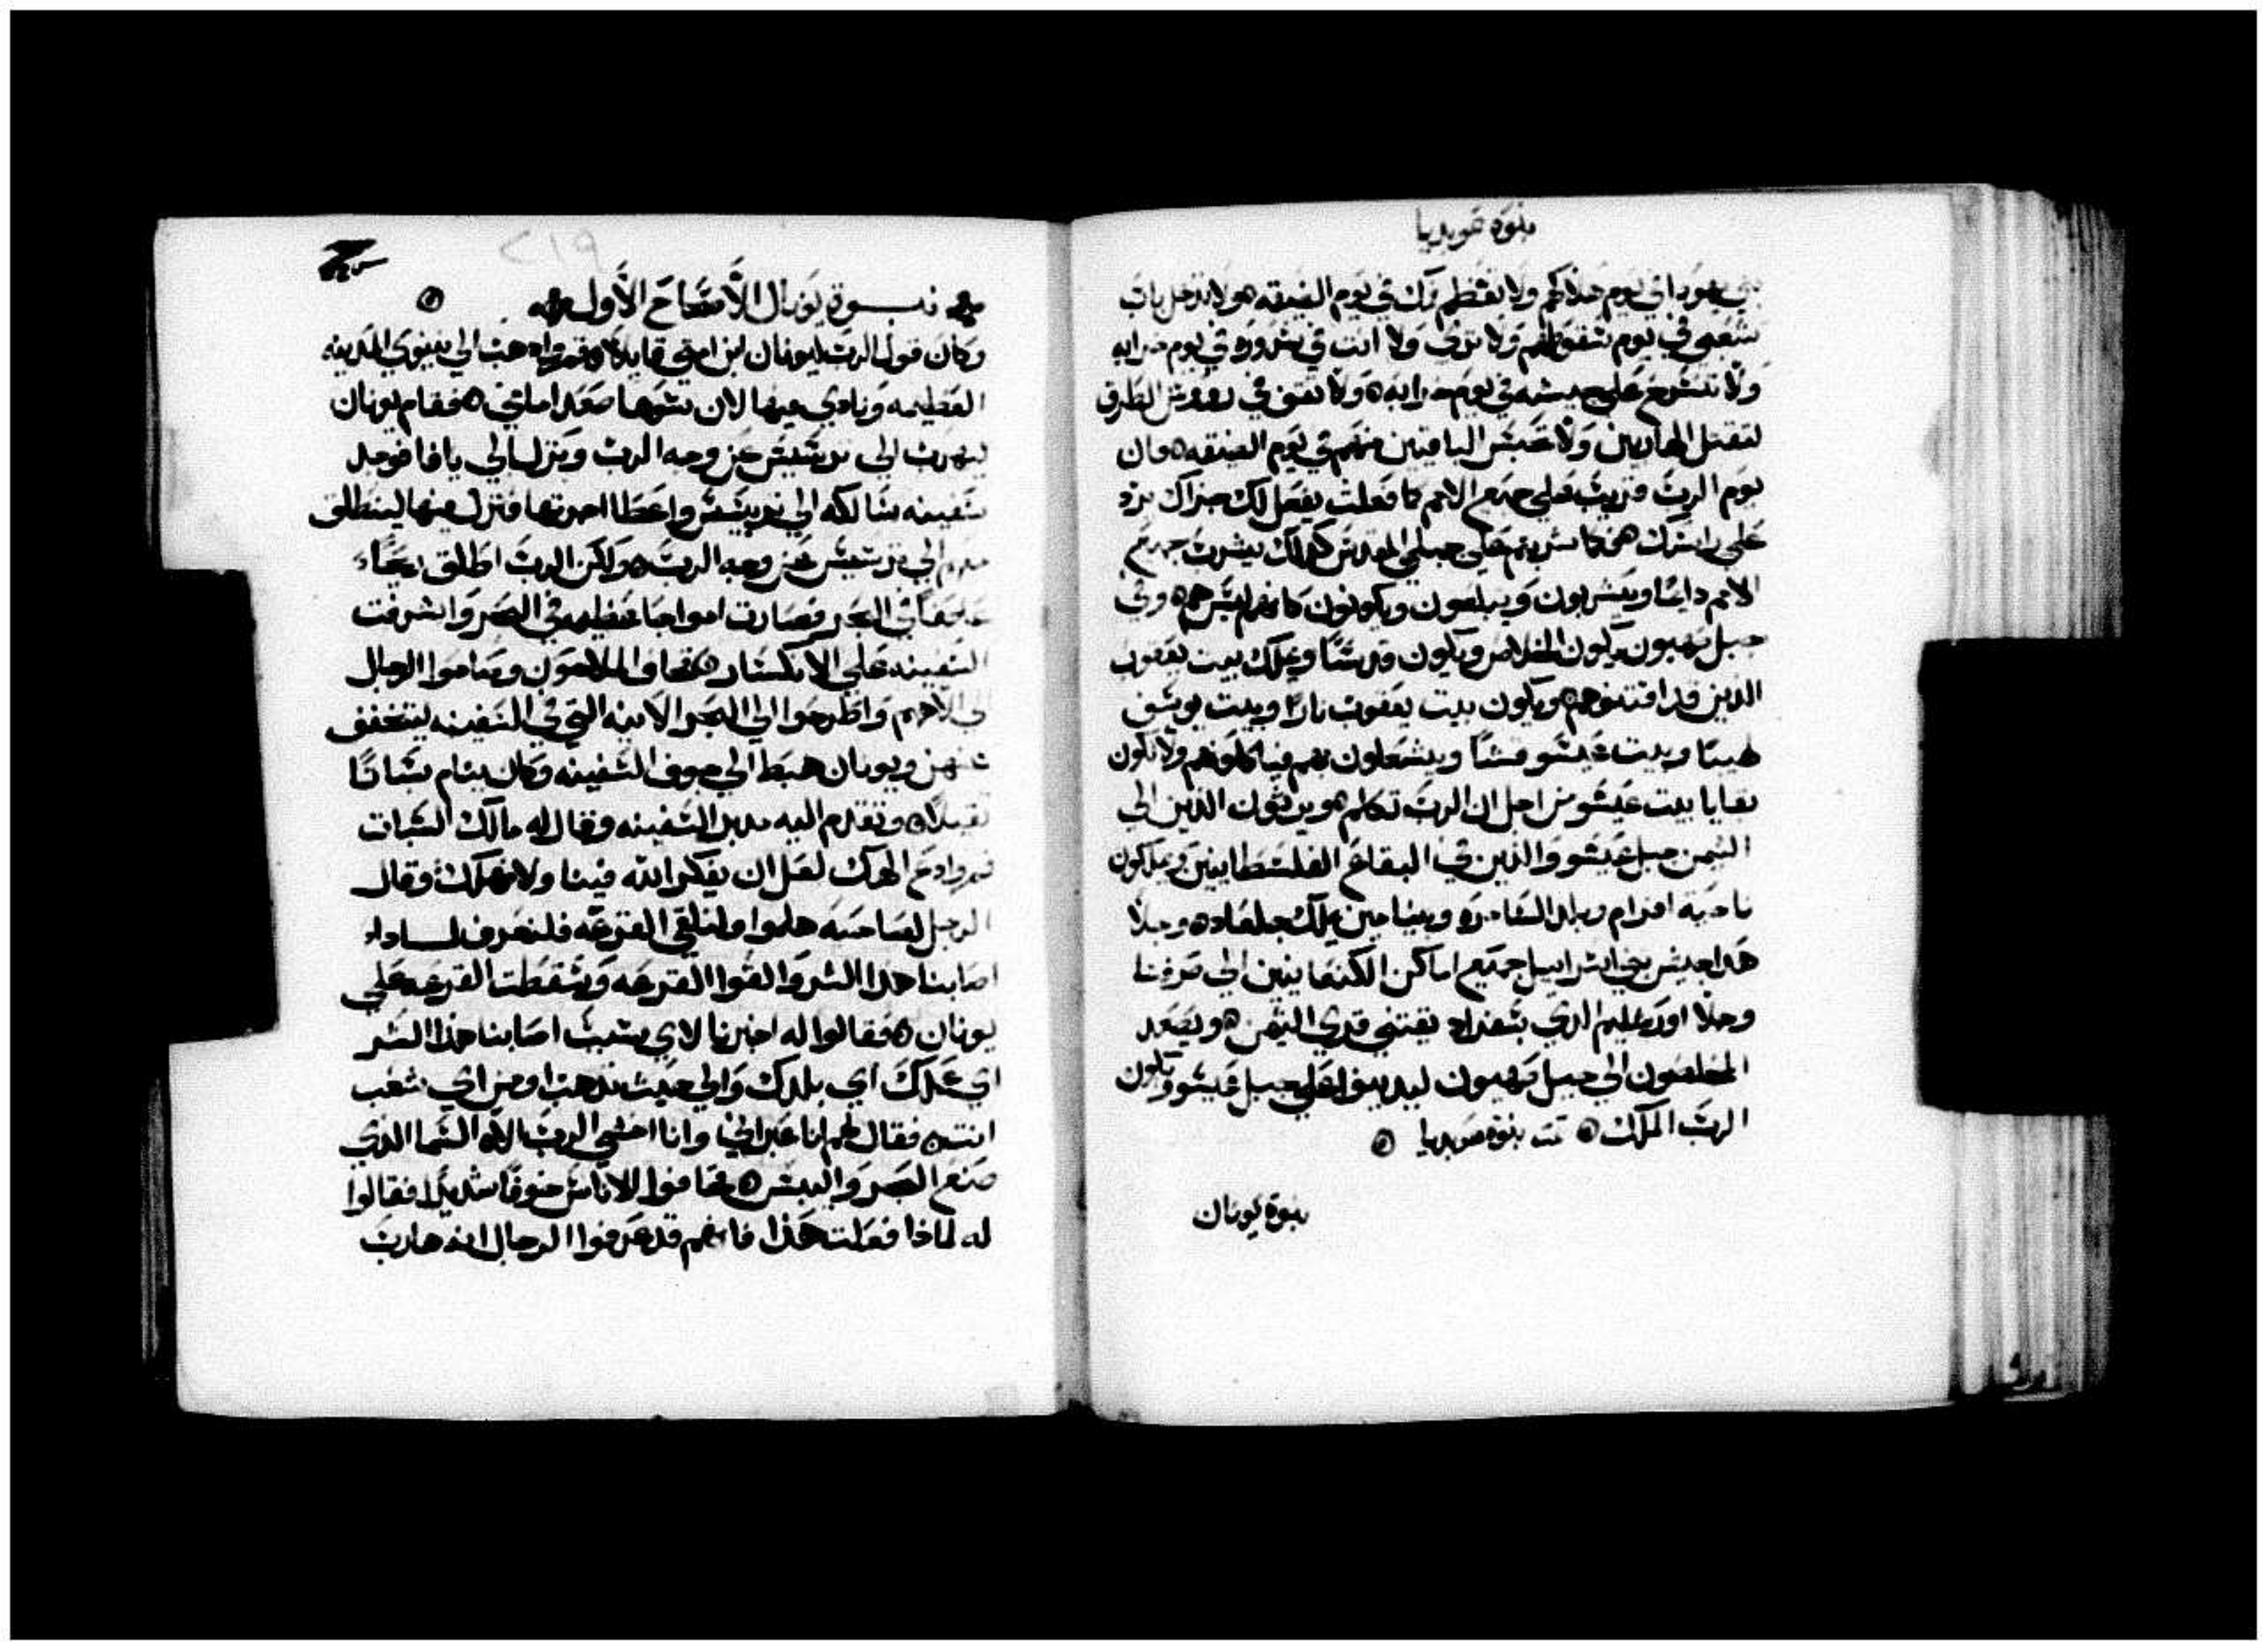 بنوة عوبديا
بني يهودا في يوم هلاكهم ولا تعظم فمك في يوم الضيقه ولا تدخل باب
شعبي في يوم سقوطهم ولا تري ولا انت في شروره في يوم خرابه
ولا تتسرع علي جيشه في يوم خرابه ولا تقف في رووس الطرق
لتقتل الهاربين ولا تحبس الباقيين منهم في يوم الضيقه فان
يوم الرب قريب علي جميع الامم كما فعلت يفعل لك جزاك يرد
علي راسك فكما شربتم علي جبلي المقدس كذلك يشرب جميع
الامم دايما ويشربون ويبلعون ويكونون كانهم ليس هم وفي
جبل صهيون يكون الخلاص ويكون قدسا ويملك بيت يعقوب
الذين قد اقتنوهم ويكون بيت يعقوب نارا وبيت يوسف
لهيبا وبيت عيسو قشا ويشعلون بهم فياكلوهم ولا تكون
بقايا بيت عيسو من اجل ان الرب تكلم ويرثون الذين الي
التيمن جبل عيسو والذين في البقاع الفلسطانيين ويملكون
ناحية افرام وبلد السامره وبنيامين يملك جلعاد وجلا
هذا جيش بني اسراييل جميع اماكن الكنعانيين الي صرفنا
وجلا اورشليم الذي بسفراد يقتني قري التيمن ويصعد
المخلصون الي جبل صهيون ليدينوا علي جبل عيسو وتكون
الرب الملك تمت بنوة عوبديا
بنوة يونان
٢١٩
نبوة يونان الاصحاح الاول
وكان قول الرب ليونان ابن امتي قايلا قم واذهب الي نينوي المدينه
العظيمه ونادي فيها لان شرها صعد امامي فقام يونان
ليهرب الي ترسيس من وجه الرب ونزل الي يافا فوجد
سفينه سالكه الي ترسيس واعطا اجرتها فنزل فيها لينطلق
معهم الي ترسيس من وجه الرب ولكن الرب اطلق ريحا
عاصفا في البحر فصارت امواجا عظيمه في البحر واشرفت
السفينه علي الانكسار فخافوا الملاحون وصاحوا الرجال
الي الاههم واطرحوا الي البحر الانيه التي في السفينه ليتخفف
عنهن ويونان هبط الي جوف السفينه وكان ينام سباتا
ثقيلا وتقدم اليه مدبر السفينه وقال له مالك السبات
قم وادع الهك لعل ان يفكر الله فينا ولا نهلك وقال
الرجل لصاحبه هلموا ولنلقي القرعه فلنعرف لماذا
اصابنا هذا الشر والقوا القرعه وسقطت القرعه علي
يونان فقالوا له اخبرنا لاي سبب اصابنا هذا الشر
اي عملك اي بلدك والي حيث تذهب ومن اي شعب
انت فقال لهم انا عبراني وانا اخشي الرب الاه السما الذي
صنع البحر واليبس فخافوا الاناس خوفا شديدا فقالوا
له لماذا فعلت هذا فانهم قد عرفوا الرجال انه هارب